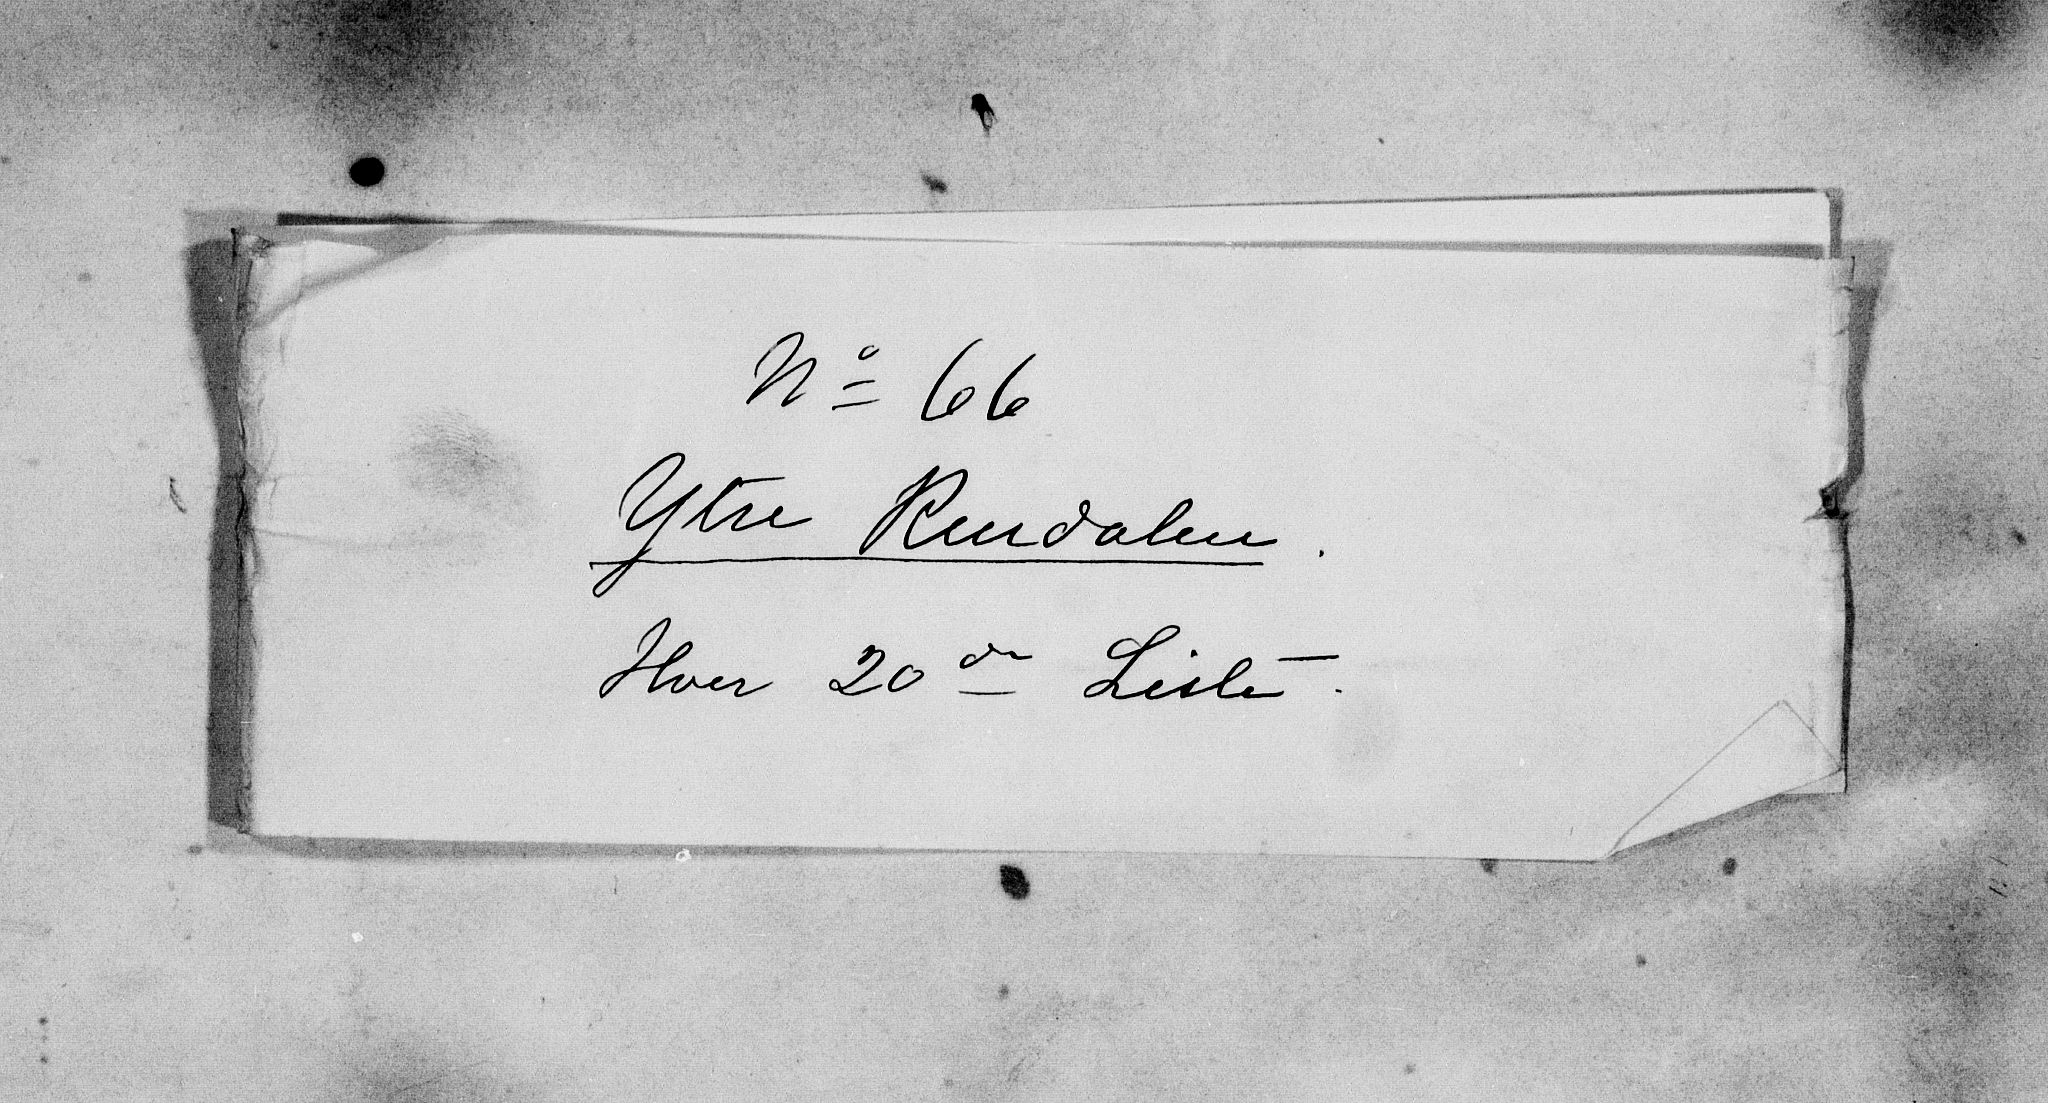 Nº 66
Ytre Rendalen.
Hver 20de Liste.